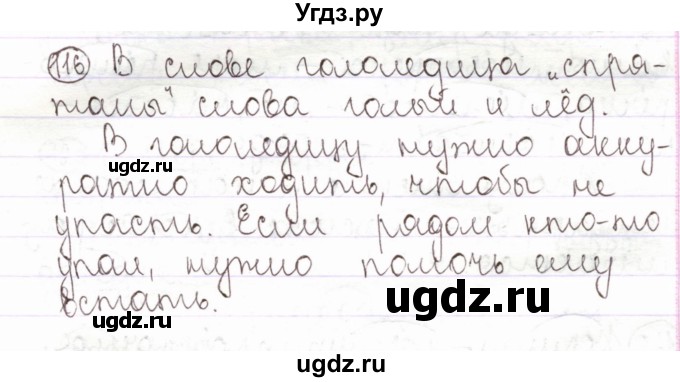 Угдз.ру
116 В слове гололедица „спря-
таны“ слова голый и лёд.
В гололедицу нужно акку-
ugdz.ru
ратно ходить, чтобы не
упасть. Если рядом кто-то
упал, нужно помочь ему
встать.
ugdz.ru
ugdz.ru
ugdz.ru